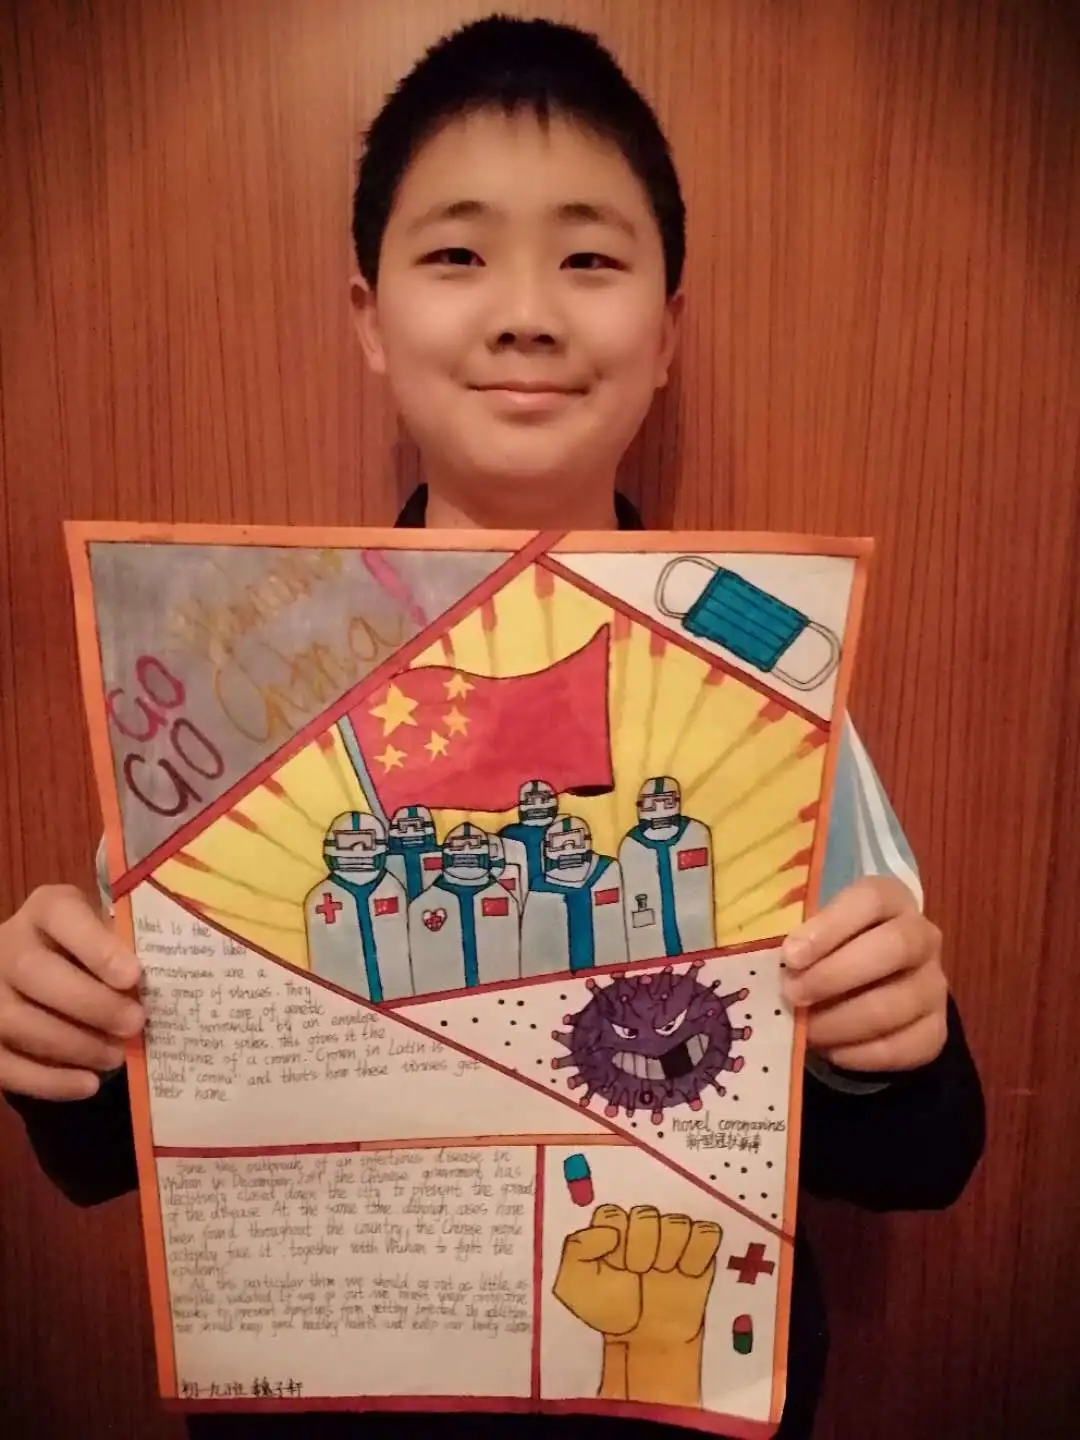 GO Wuhan
GO China!
What is the
Coronaviruses like?
Coronaviruses are a
group of viruses. They
of a core of genetic
material surrounded by an envelope
with protein spikes. This gives it the
appearance of a crown. Crown in Latin is
called "corona" and that's how these viruses get
their name.
novel coronavirus
新型冠状病毒
Since the outbreak of an infectious disease in
Wuhan in December, the Chinese government has
decisively closed down the city to prevent the spread
of the disease. At the same time, although cases have
been found throughout the country, the Chinese people
actively face it, together with Wuhan to fight the
epidemic.
At this particular time we should go out as little as
possible, if we go out we must wear protective
masks to prevent from getting infected. In addition
we should keep good healthy habits and keep our body clean
初一九班 子轩